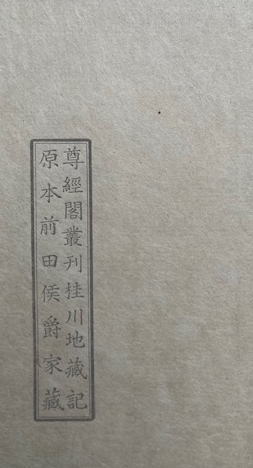 尊經閣叢刊桂川地藏記
原本前田侯爵家藏